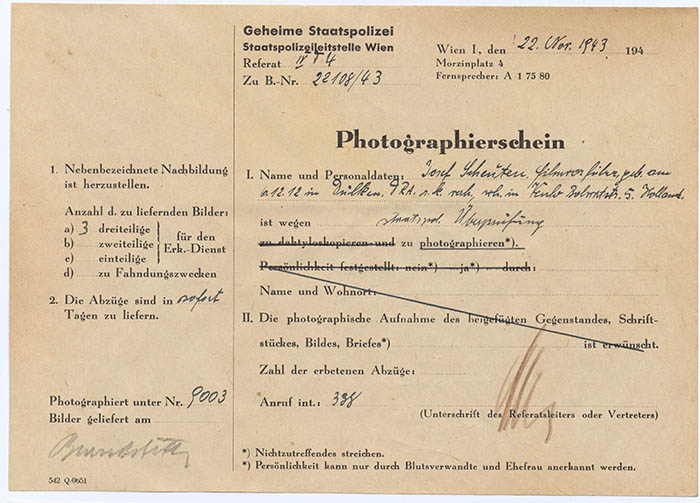 Geheime Staatspolizei
Staatspolizeileitstelle Wien
Referat IV
Zu B.-Nr. 22108/43
Wien I, den 22. Nov. 1943 194
Morzinplatz 4
Fernsprecher: A 1 75 80
Photographierschein
1. Nebenbezeichnete Nachbildung
ist herzustellen.
Anzahl d. zu liefernden Bilder:
a) 3 dreiteilige
b) zweiteilige
c) einteilige
für den
Erk.-Dienst
d) zu Fahndungszwecken
2. Die Abzüge sind in sofort
Tagen zu liefern.
Photographiert unter Nr. 9003
Bilder geliefert am
542 Q-0651
I. Name und Personaldaten: Josef Scheuten, Filmvorführer, geb. am
in Dülken, in 5, Holland.
ist wegen staatspol. Überprüfung
zu daktyloskopieren und zu photographieren*).
Persönlichkeit festgestellt: nein*) ja*) durch:
Name und Wohnort:
II. Die photographische Aufnahme des beigefügten Gegenstandes, Schrift-
stückes, Bildes, Briefes*) ist erwünscht.
Zahl der erbetenen Abzüge:
Anruf int.: 398
(Unterschrift des Referatsleiters oder Vertreters)
*) Nichtzutreffendes streichen.
*) Persönlichkeit kann nur durch Blutsverwandte und Ehefrau anerkannt werden.